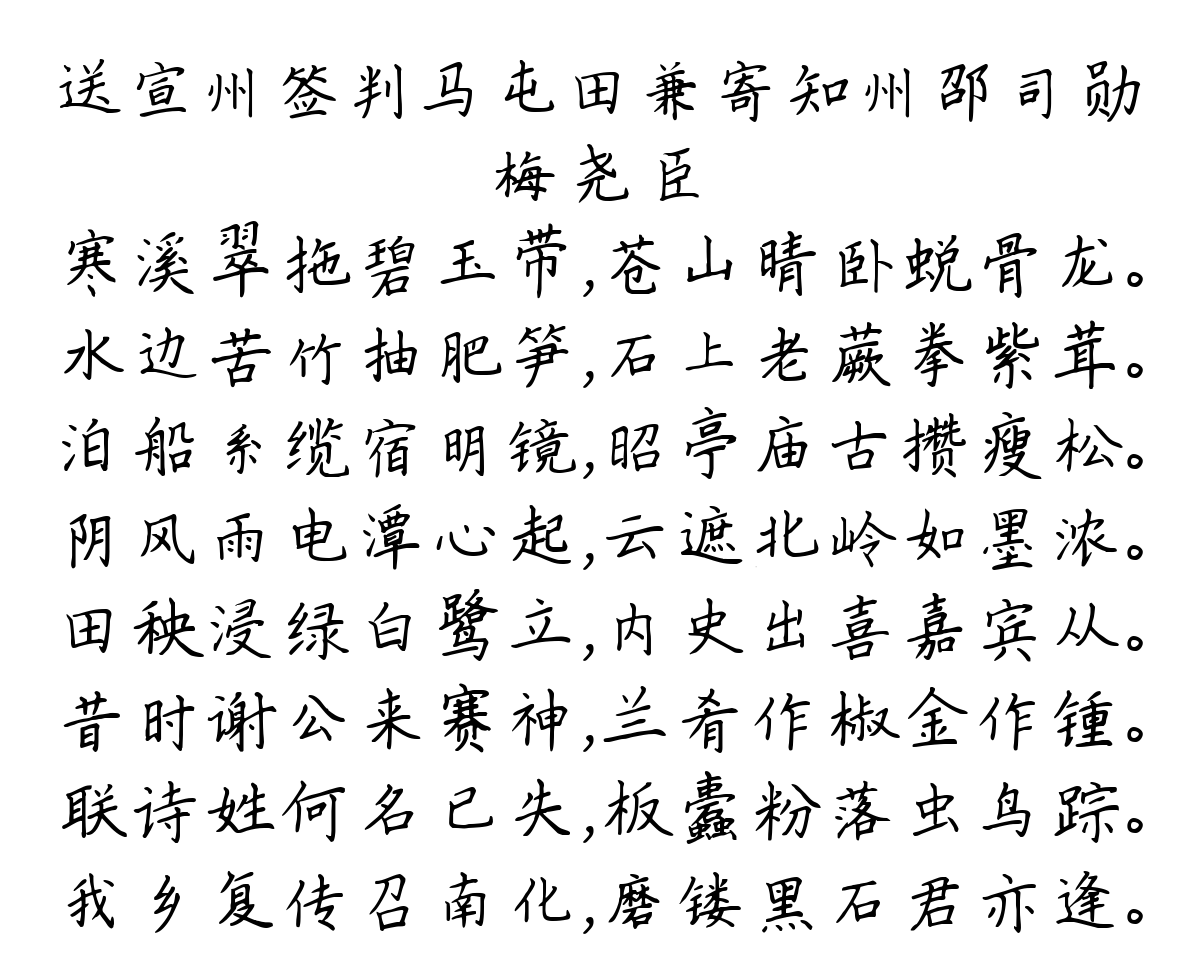 送宣州签判马屯田兼寄知州邵司勋
梅尧臣
寒溪翠拖碧玉带,苍山晴卧蜕骨龙。
水边苦竹抽肥笋,石上老蕨拳紫茸。
泊船系缆宿明镜,昭亭庙古攒瘦松。
阴风雨电潭心起,云遮北岭如墨浓。
田秧浸绿白鹭立,内史出喜嘉宾从。
昔时谢公来赛神,兰肴作椒金作锺。
联诗姓何名已失,板蠹粉落虫鸟踪。
我乡复传召南化,磨镂黑石君亦逢。